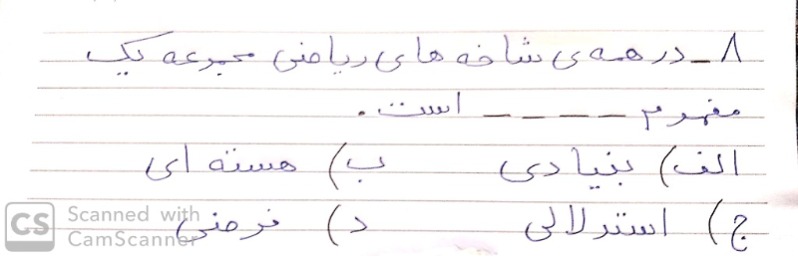 ۸_ در همه ی شاخه های ریاضی مجموعه یک
مفهوم _ _ _ _ است.
الف) بنیادی ب) هسته ای
ج) استدلالی د) فرضی
CS Scanned with
CamScanner